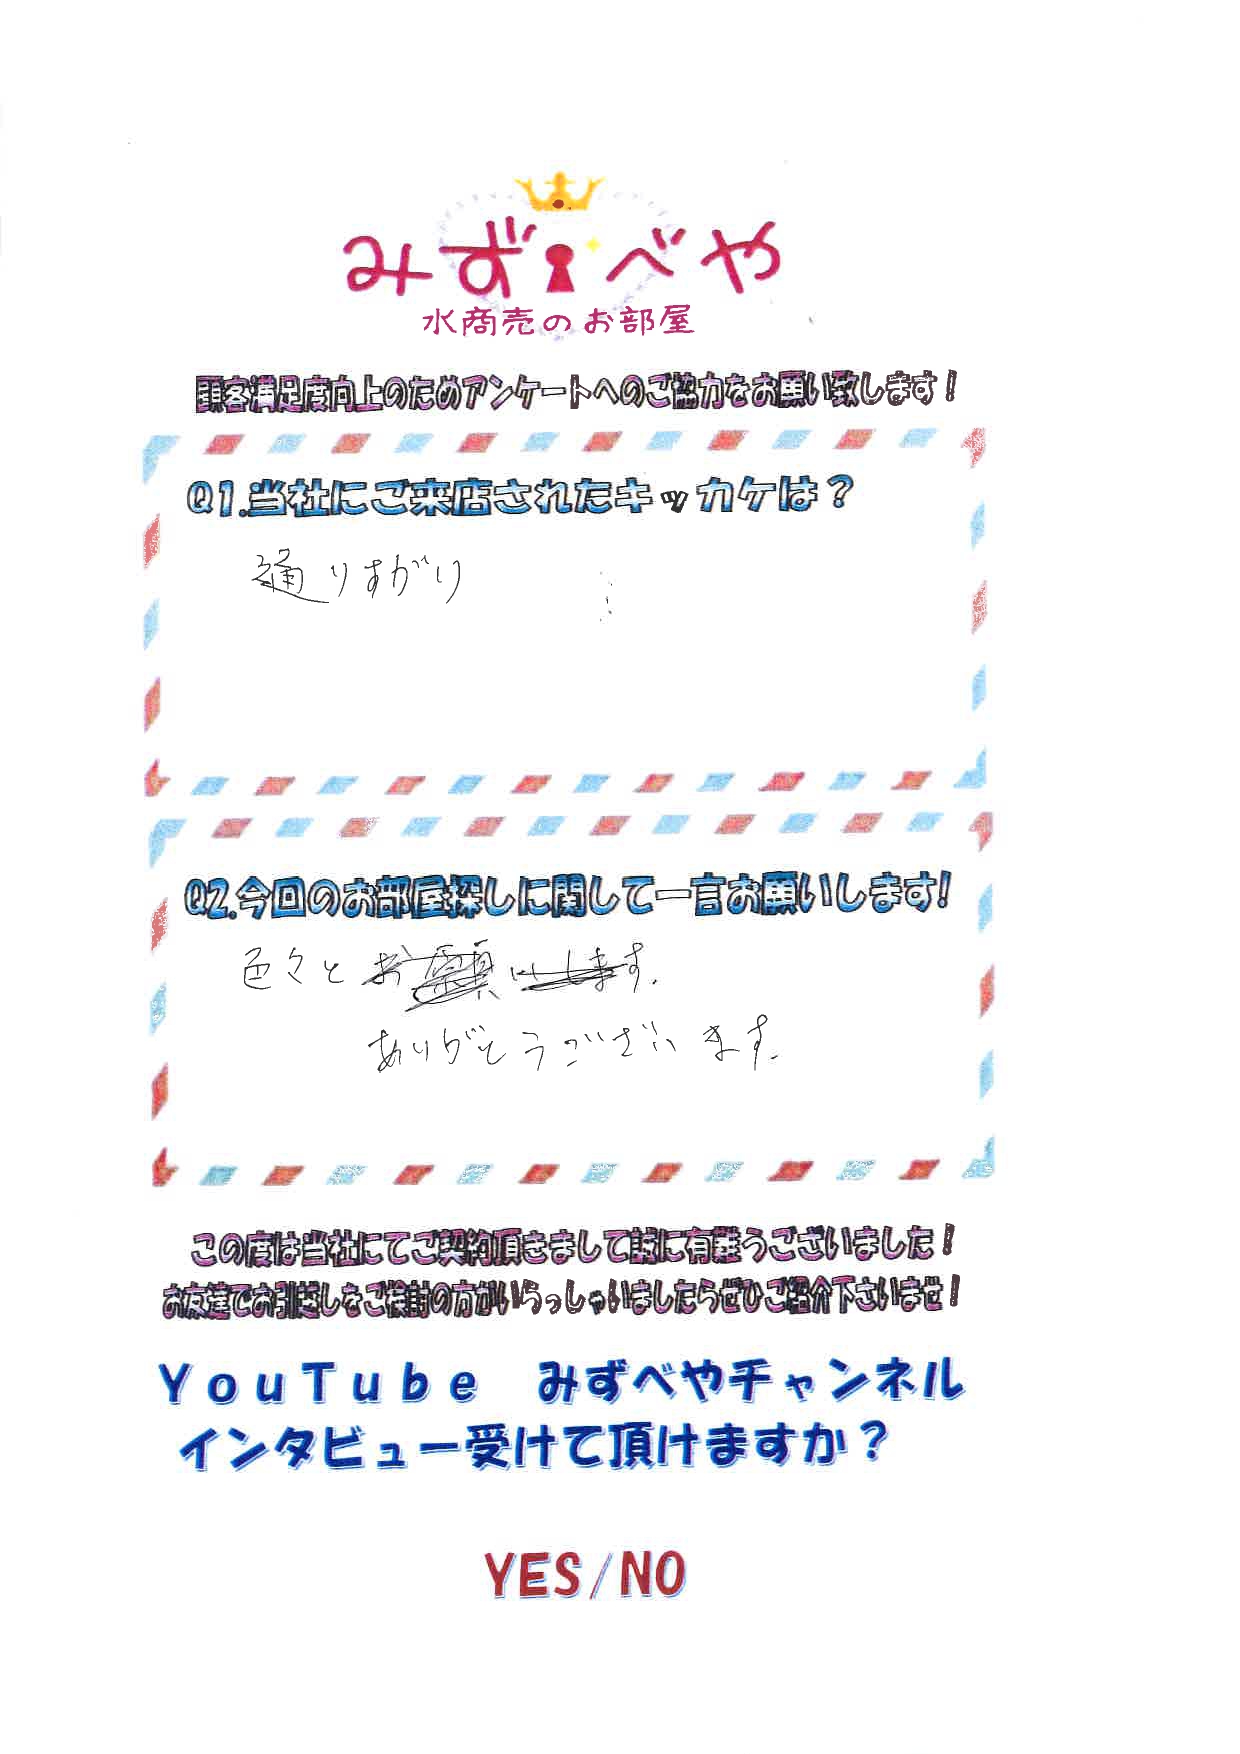 みずべや
水商売のお部屋
顧客満足度向上のためアンケートへのご協力をお願い致します！
Q1.当社にご来店されたキッカケは？
通りすがり
Q2.今回のお部屋探しに関して一言お願いします!
色々とお願いします.
ありがとうございます.
この度は当社にてご契約頂きまして誠に有難うございました！
お友達でお引越しをご検討の方がいらっしゃいましたらぜひご紹介下さいませ！
YouTube みずべやチャンネル
インタビュー受けて頂けますか？
YES/NO